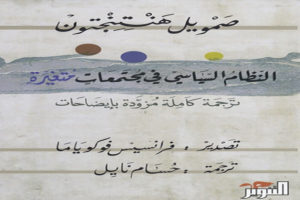 صمويل هنتنجتون
النظام السياسي في مجتمعات متغيرة
ترجمة كاملة مزودة بإيضاحات
تصدير: فرانسيس فوكوياما
ترجمة: حسام نايل
التنوير